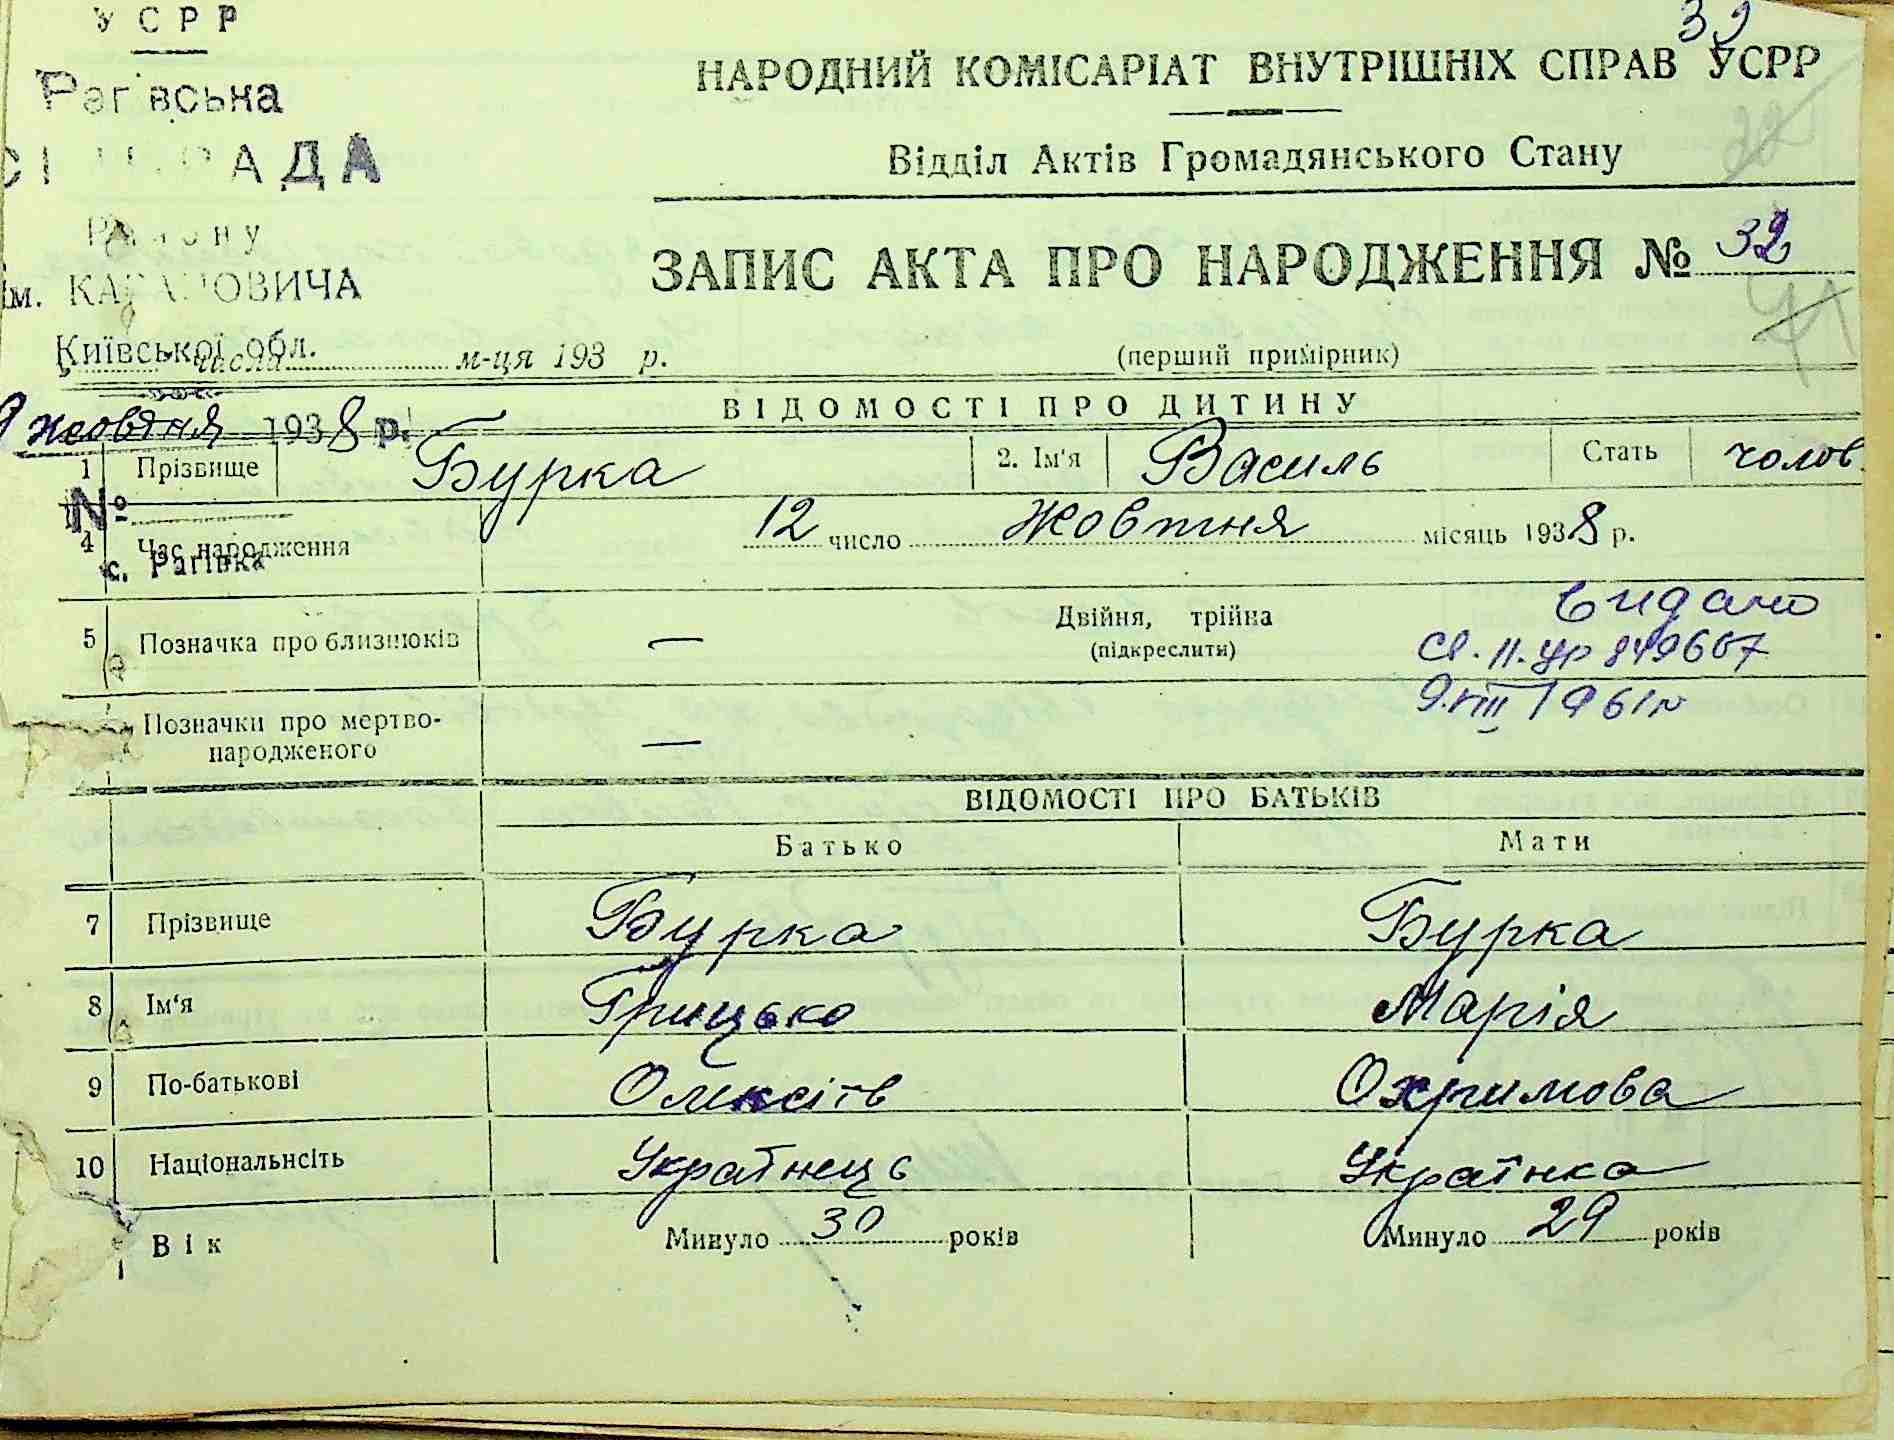 УСРР
Рагівська
СІЛЬРАДА
Району
ім. КАГАНОВИЧА
Київської обл.
числа м-ця 193 р.
9 жовтня 1938 р.
№
с. Рагівка
39
НАРОДНИЙ КОМІСАРІАТ ВНУТРІШНІХ СПРАВ УСРР
Відділ Актів Громадянського Стану
ЗАПИС АКТА ПРО НАРОДЖЕННЯ № 32
(перший примірник)
ВІДОМОСТІ ПРО ДИТИНУ
1 Прізвище Бурка 2. Ім'я Василь Стать чолов.
4 Час народження 12 число Жовтня місяць 1938 р.
5 Позначка про близнюків — Двійня, трійна
(підкреслити)
видано
св. II-УР 849607
9.VIII 1961 р
Позначки про мертво-
народженого —
ВІДОМОСТІ ПРО БАТЬКІВ
Батько Мати
7 Прізвище Бурка Бурка
8 Ім'я Грицько Марія
9 По-батькові Олексіїв Охримова
10 Національнсіть Українець Українка
Вік Минуло 30 років Минуло 29 років